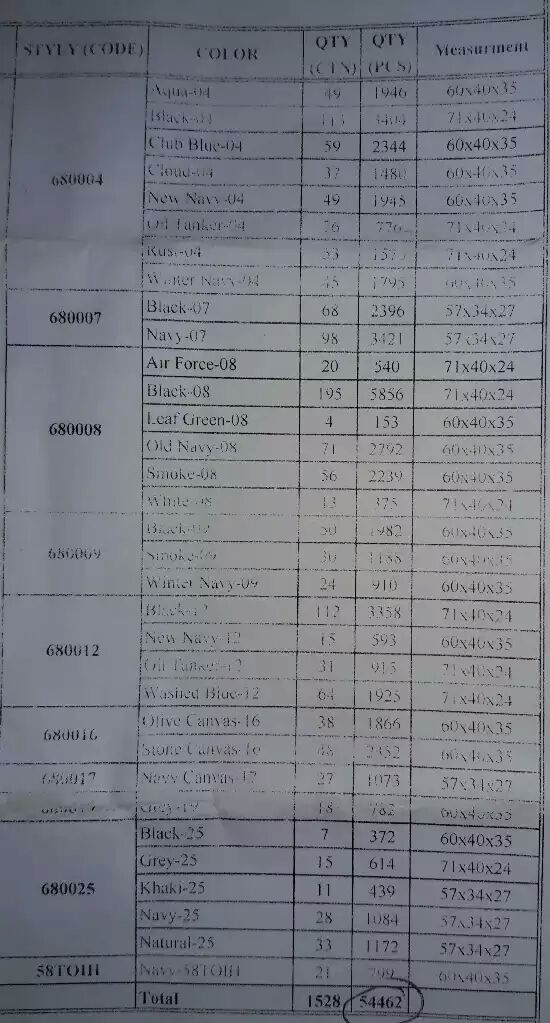 STYLY (CODE) COLOR QTY (CTN) QTY (PCS) Measurment
680004 Aqua-04 49 1946 60x40x35
Black-04 113 71x40x24
Club Blue-04 59 2344 60x40x35
Cloud-04 37 1480 60x40x35
New Navy-04 49 1945 60x40x35
Oil Tanker-04 26 776 71x40x24
Rust-04 53 71x40x24
Winter Navy-04 45 1795 60x40x35
680007 Black-07 68 2396 57x34x27
Navy-07 98 3421 57x34x27
680008 Air Force-08 20 540 71x40x24
Black-08 195 5856 71x40x24
Leaf Green-08 4 153 60x40x35
Old Navy-08 71 2792 60x40x35
Smoke-08 56 2239 60x40x35
White-08 13 375 71x40x24
680009 Black-09 50 1982 60x40x35
Smoke-09 30 1188 60x40x35
Winter Navy-09 24 910 60x40x35
680012 Black-12 112 3358 71x40x24
New Navy-12 15 593 60x40x35
Oil Tanker-12 31 915 71x40x24
Washed Blue-12 64 1925 71x40x24
680016 Olive Canvas-16 38 1866 60x40x35
Stone Canvas-16 48 2352 60x40x35
680017 Navy Canvas-17 27 1073 57x34x27
Grey-19 18 782 60x40x35
680025 Black-25 7 372 60x40x35
Grey-25 15 614 71x40x24
Khaki-25 11 439 57x34x27
Navy-25 28 1084 57x34x27
Natural-25 33 1172 57x34x27
58TOIH Navy-58TOIH 21 799 60x40x35
Total 1528 54462